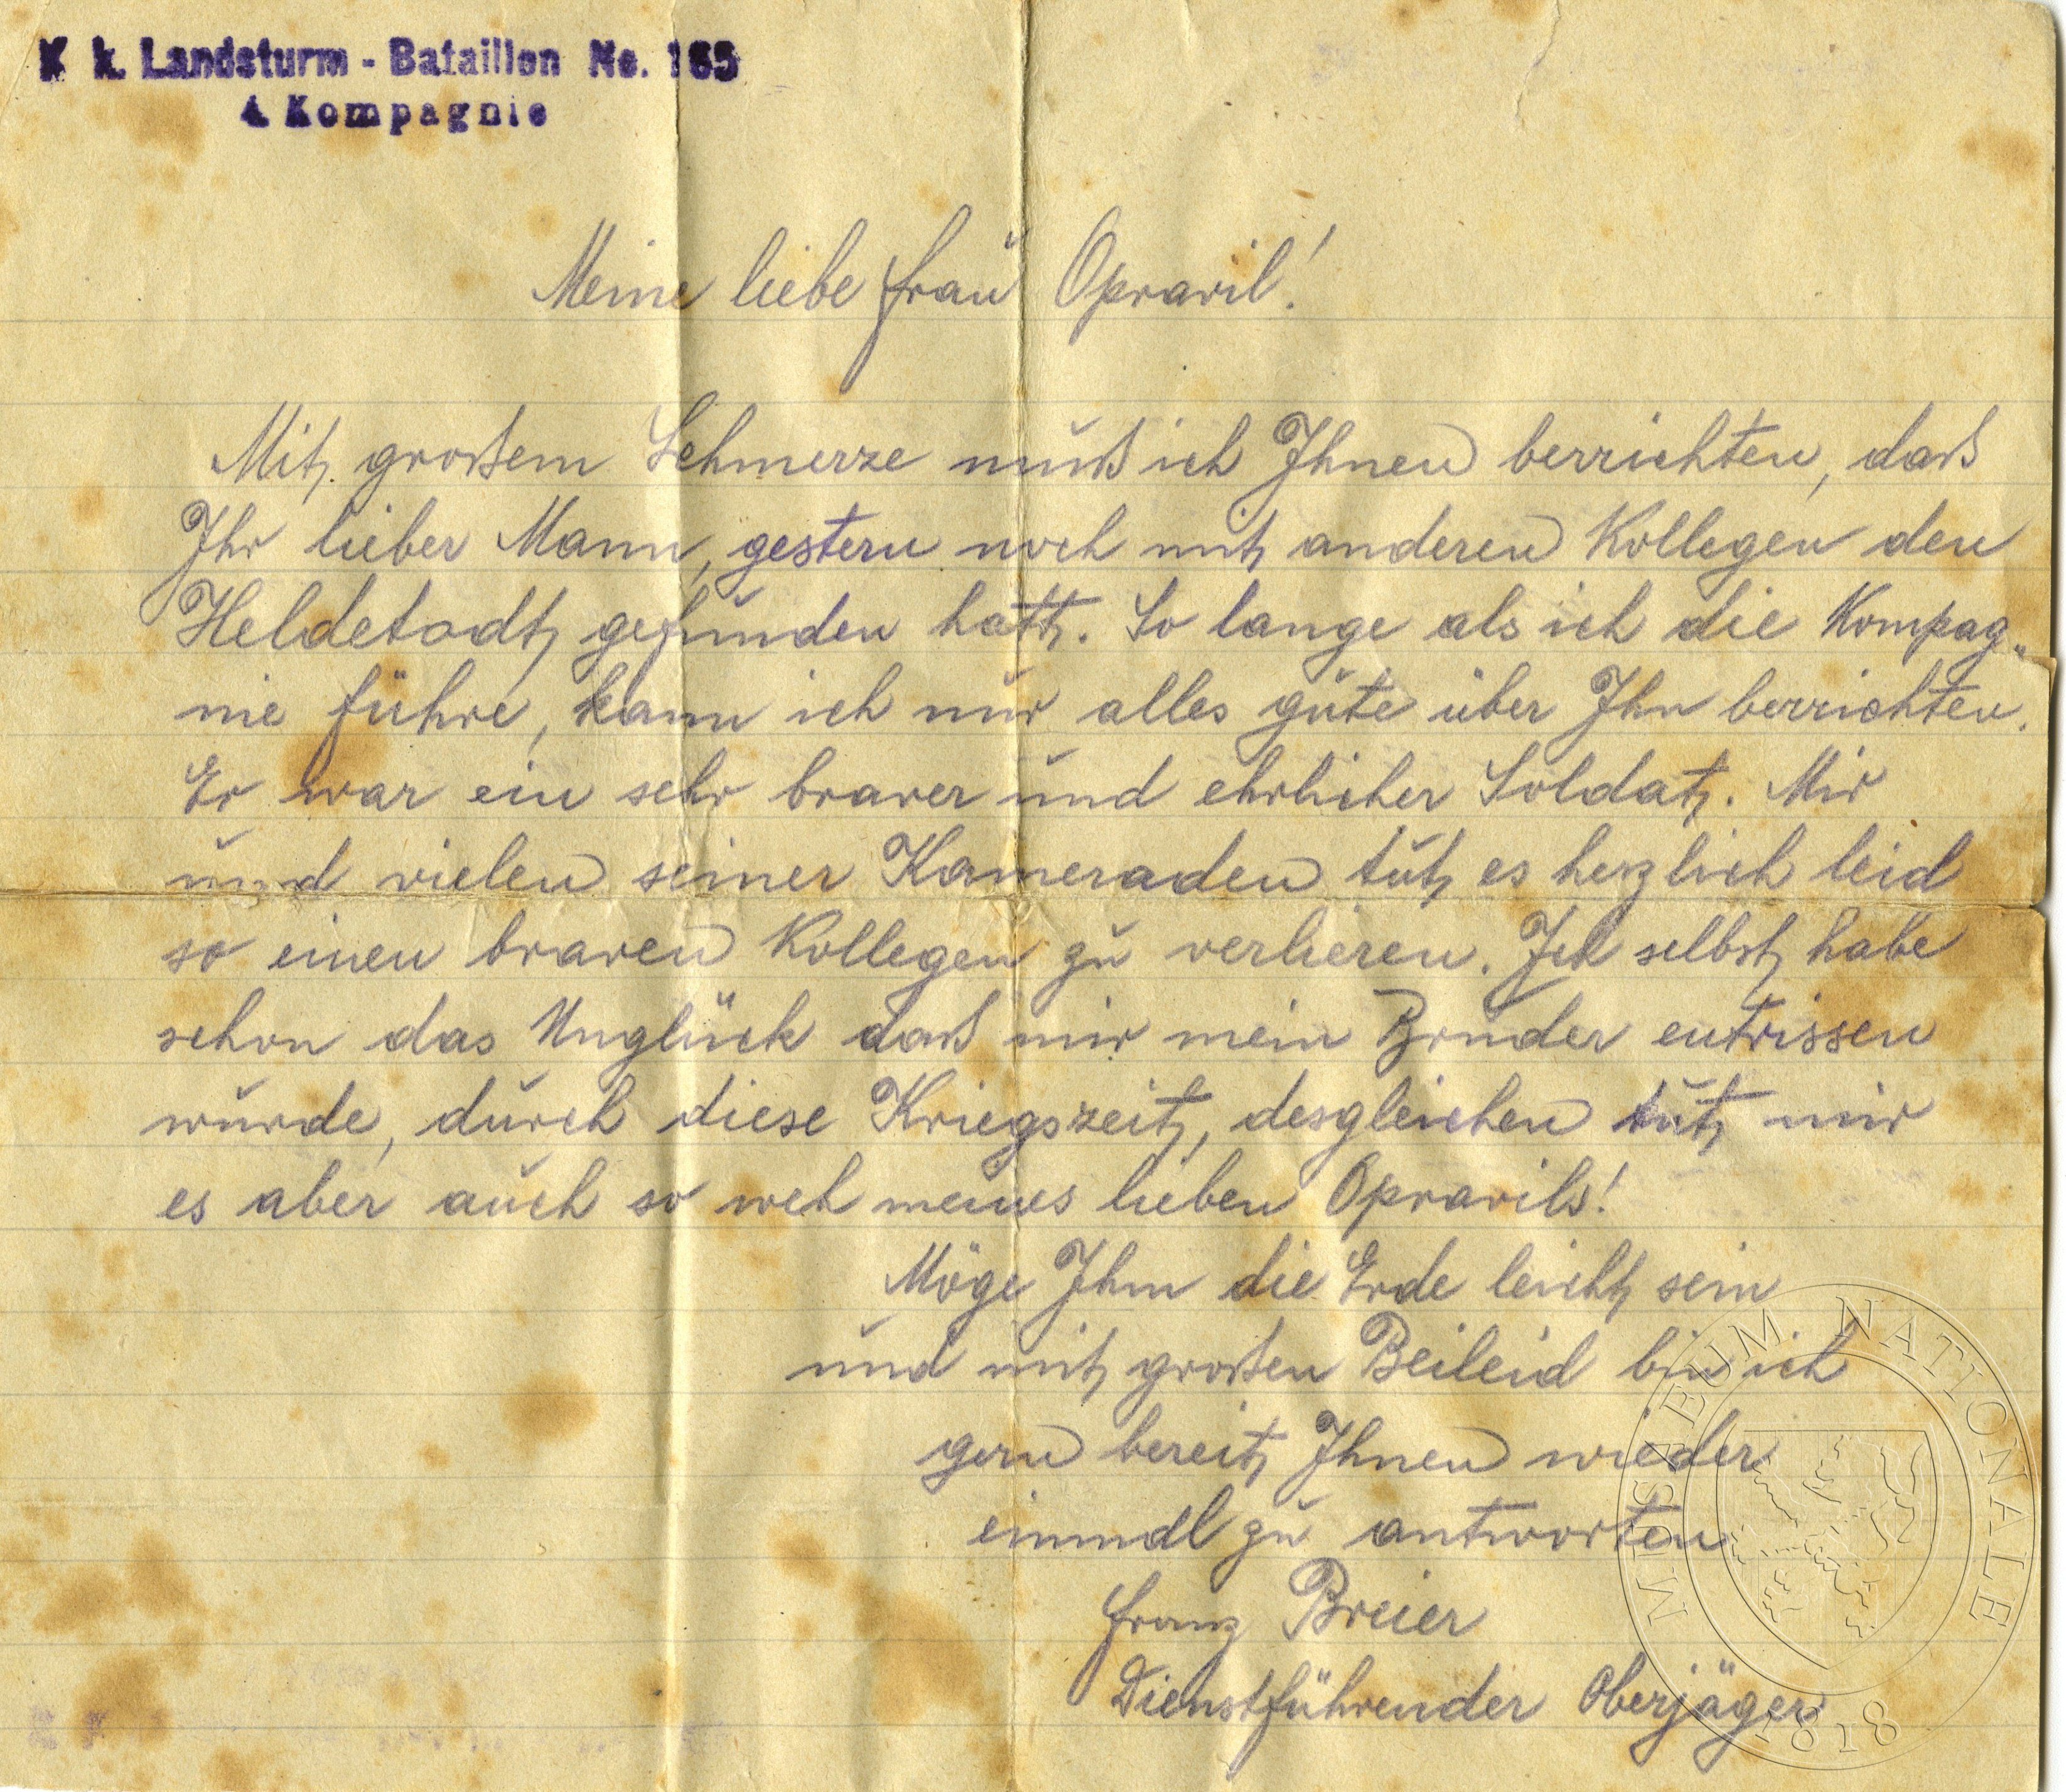 K k. Landsturm - Bataillon No. 165
4 Kompagnie
Meine liebe Frau Opravil!
Mit großem Schmerze muß ich Ihnen berrichten, daß
Ihr lieber Mann, gestern noch mit anderen Kollegen den
Heldetodt gefunden hatt. So lange als ich die Kompag„
nie führe, kann ich nur alles gute über Ihn berrichten.
Er war ein sehr braver und ehrlicher Soldat. Mir
und vielen seiner Kameraden tut es herzlich leid
so einen braven Kollegen zu verlieren. Ich selbst habe
schon das Unglück daß mir mein Bruder entrissen
wurde, durch diese Kriegszeit, desgleichen tut mir
es aber auch so weh meines lieben Opravils!
Möge Ihm die Erde leicht sein
und mit großen Beileid bin ich
gern bereit Ihnen wieder
einmal zu antworten
Franz Breier
Dienstführender Oberjäger
MUSAEUM NATIONALE
1818